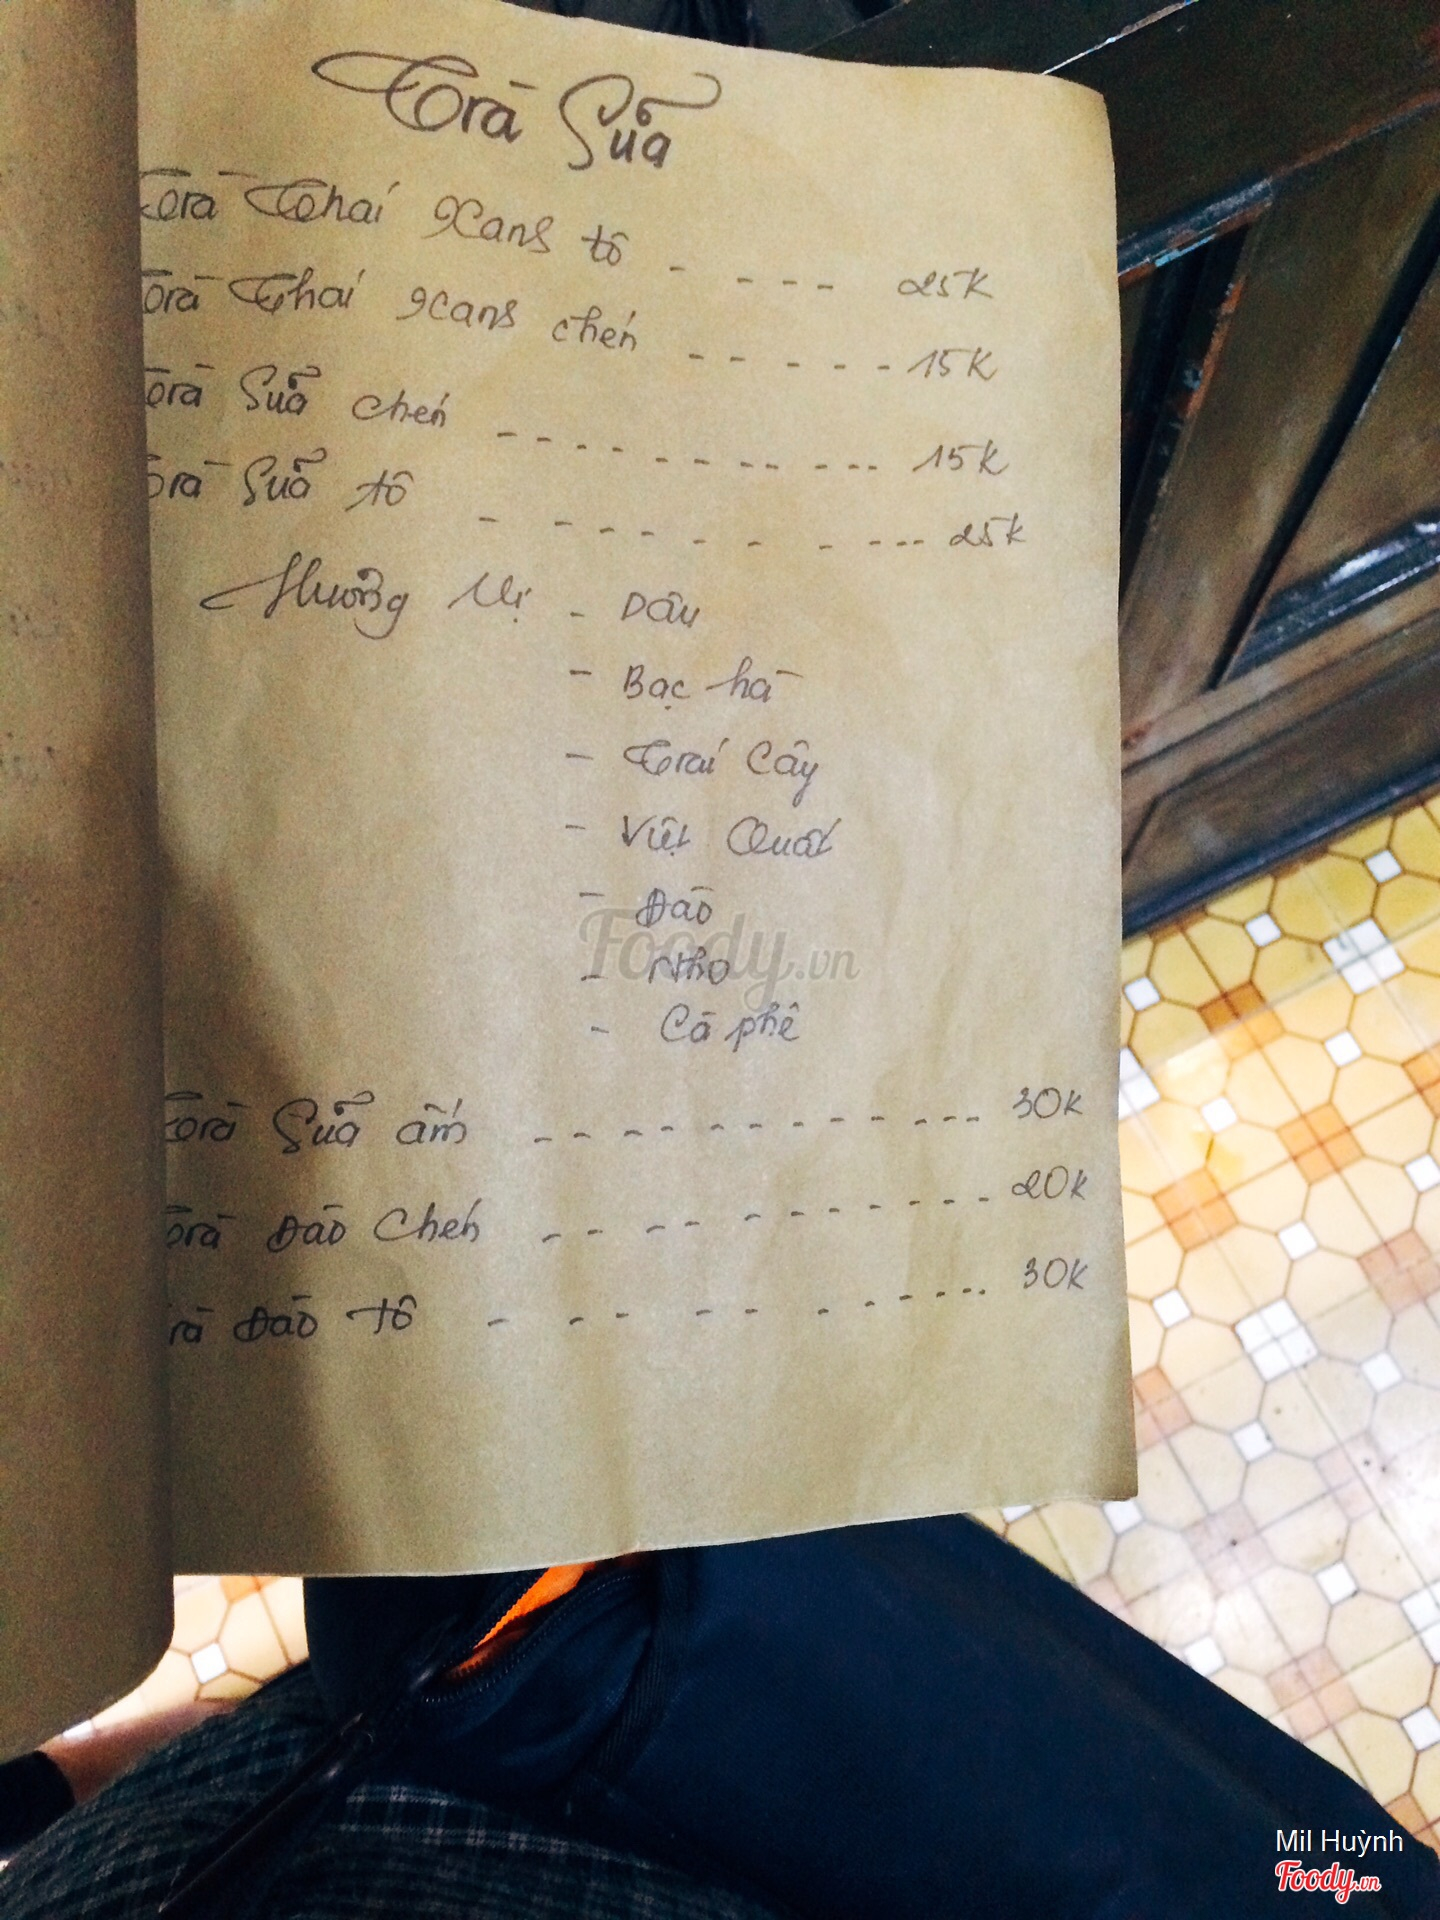 Trà Sữa
Trà Thái Xanh tô - - - - 25K
Trà Thái Xanh chén - - - - - 15K
Trà Sữa chén - - - - - - - - - - - 15K
Trà Sữa tô - - - - - - - - - - 25K
Hương Vị - Dâu
- Bạc hà
- Trái Cây
- Việt Quất
- Đào
- Nho
- Cà phê
Trà Sữa ấm - - - - - - - - - - - 30K
Trà Đào Chén - - - - - - - - - - 20K
Trà Đào tô - - - - - - - - - - 30K
Foody.vn
Mil Huỳnh
Foody.vn